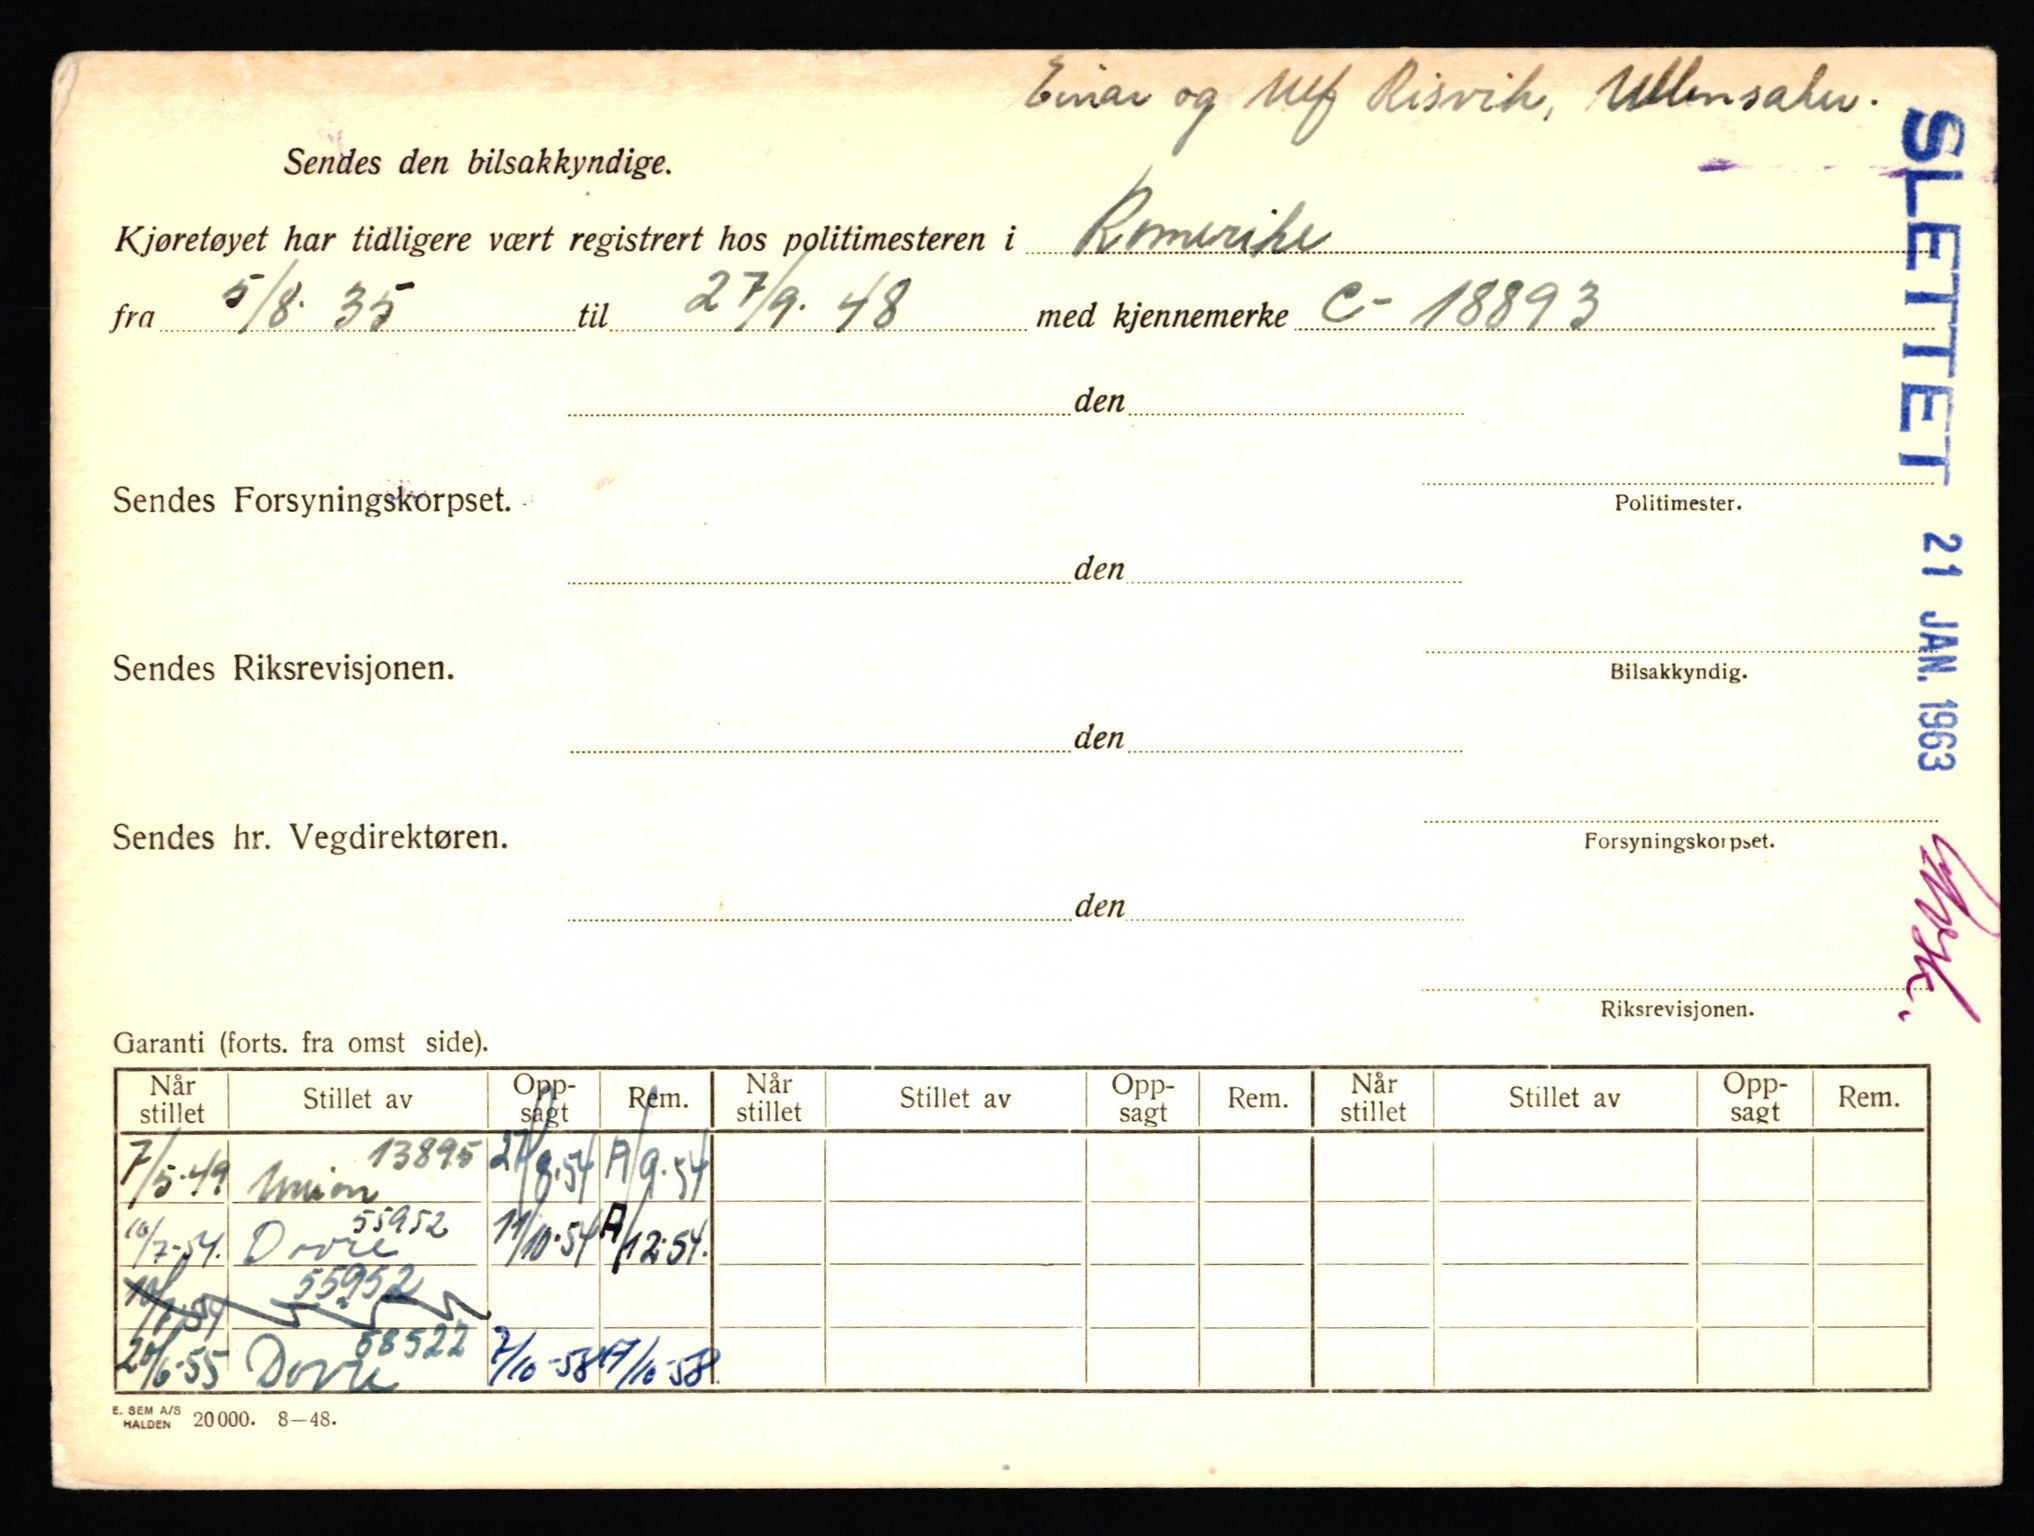 Einar og Ulf Risvik, Ullensaker.
Sendes den bilsakkyndige.
Kjøretøyet har tidligere vært registrert hos politimesteren i Romerike
fra 5/8. 35 til 27/9. 48 med kjennemerke C- 18893
den
Sendes Forsyningskorpset.
Politimester.
den
Sendes Riksrevisjonen.
Bilsakkyndig.
den
Sendes hr. Vegdirektøren.
Forsyningskorpset.
den
Riksrevisjonen.
SLETTET 21 JAN. 1963
Garanti (forts. fra omst side).
Når stillet Stillet av Opp-sagt Rem. Når stillet Stillet av Opp-sagt Rem. Når stillet Stillet av Opp-sagt Rem.
7/5-49 Union 13895 27/8.54 A/9.54
10/7-54. Dovre 55952 11/10.54 A/12.54.
10/7.54 55952
20/6-55 Dovre 58522 2/10-58 17/10-58.
E. SEM A/S HALDEN 20000. 8—48.